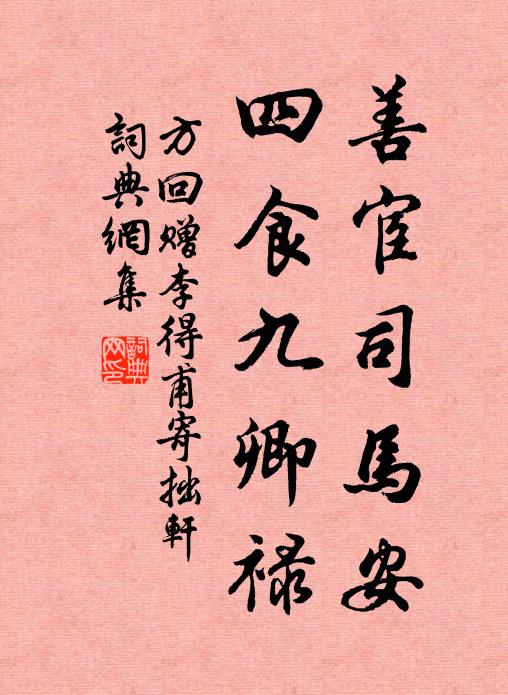 善宦司馬安
四食九卿祿
方回赠李得甫寄拙軒
詞典網集
詞典
网印